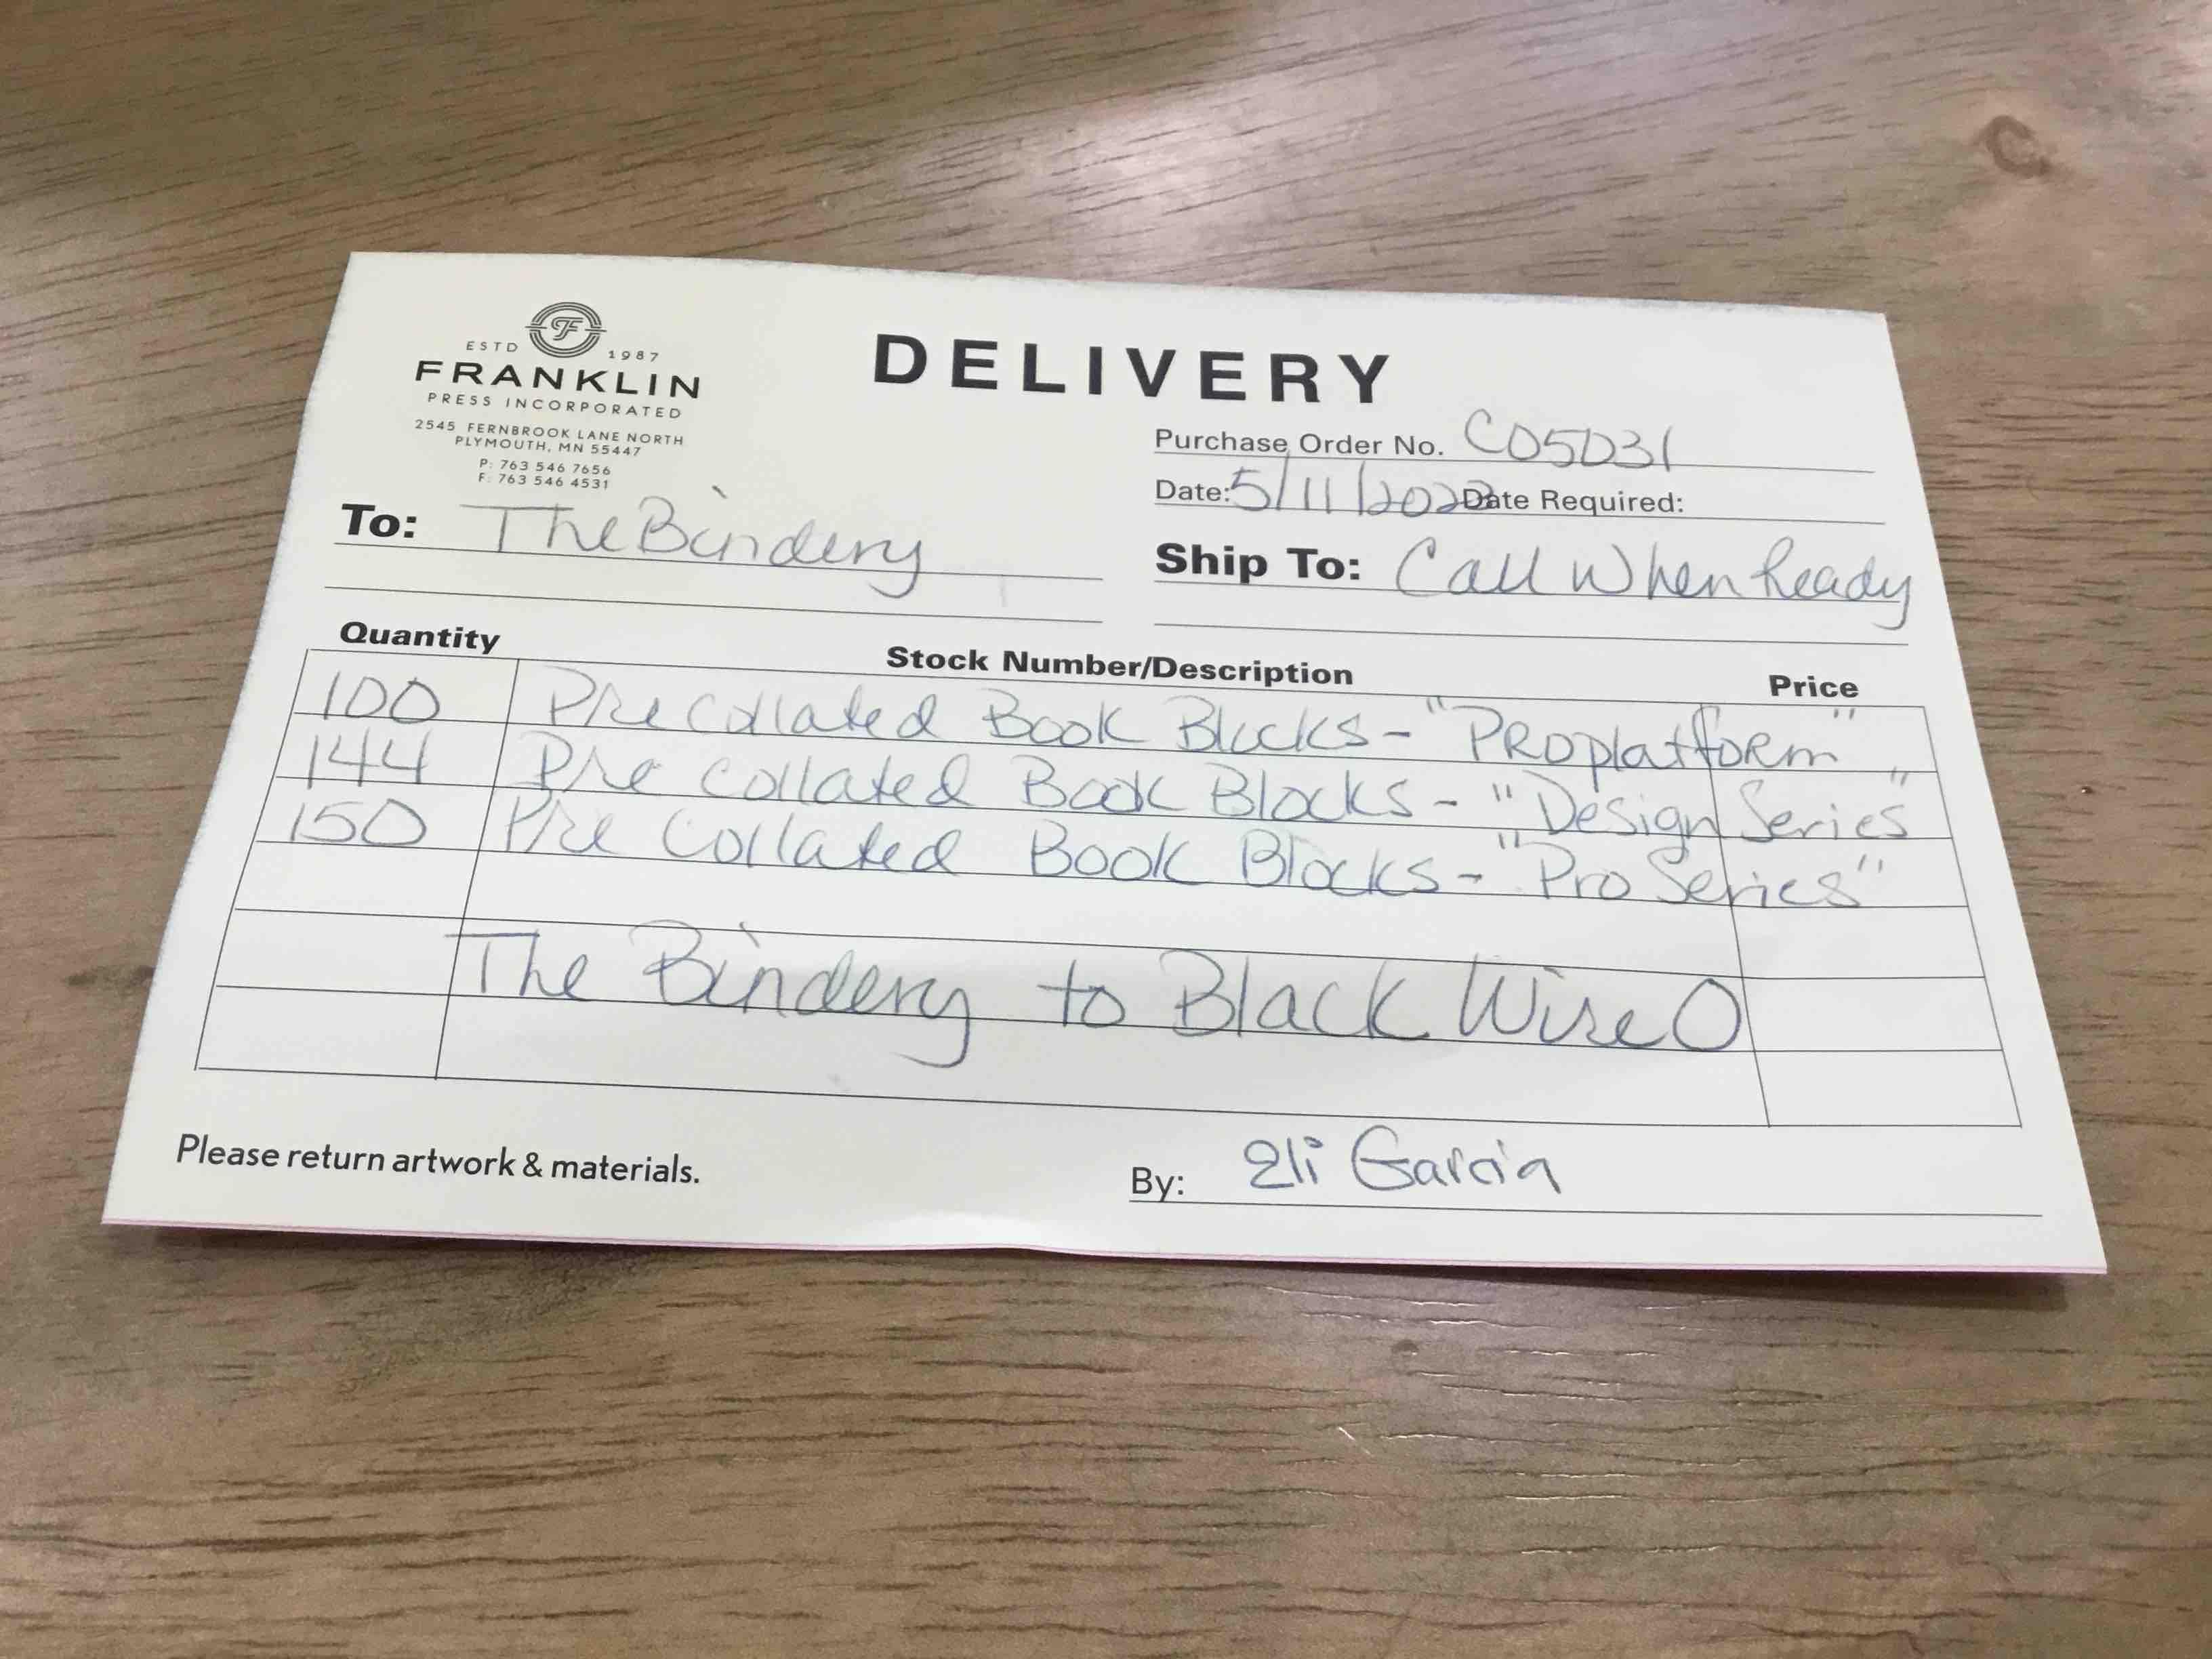 ESTD F 1987
FRANKLIN
PRESS INCORPORATED
2545 FERNBROOK LANE NORTH
PLYMOUTH, MN 55447
P: 763 546 7656
F: 763 546 4531
DELIVERY
Purchase Order No. C05031
Date: 5/11/2023 Date Required:
To: The Bindery
Ship To: Call When Ready
Quantity Stock Number/Description Price
100 Pre Collated Book Blocks - "PROplatform"
144 Pre Collated Book Blocks - "Design Series"
150 Pre Collated Book Blocks - "Pro Series"
The Bindery to Black Wire O
Please return artwork & materials.
By: Eli Garcia